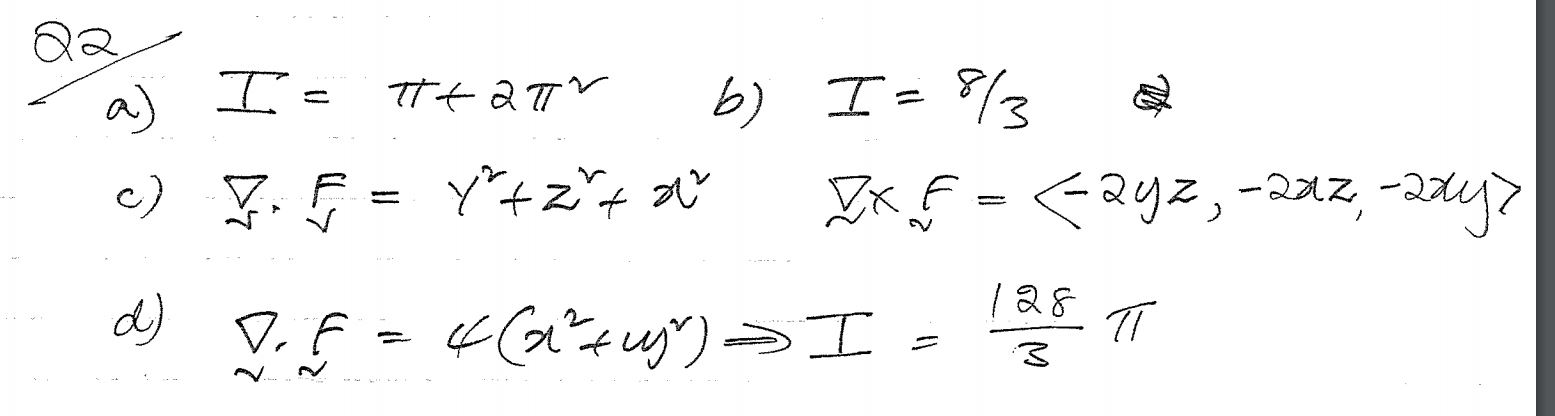 Q2
a) I = π + 2π² b) I = 8/3
c) ∇. F = y² + z² + x² ∇ × F = <-2yz, -2xz, -2xy>
d) ∇. F = 4(x² + y²) ⇒ I = 128/3 π